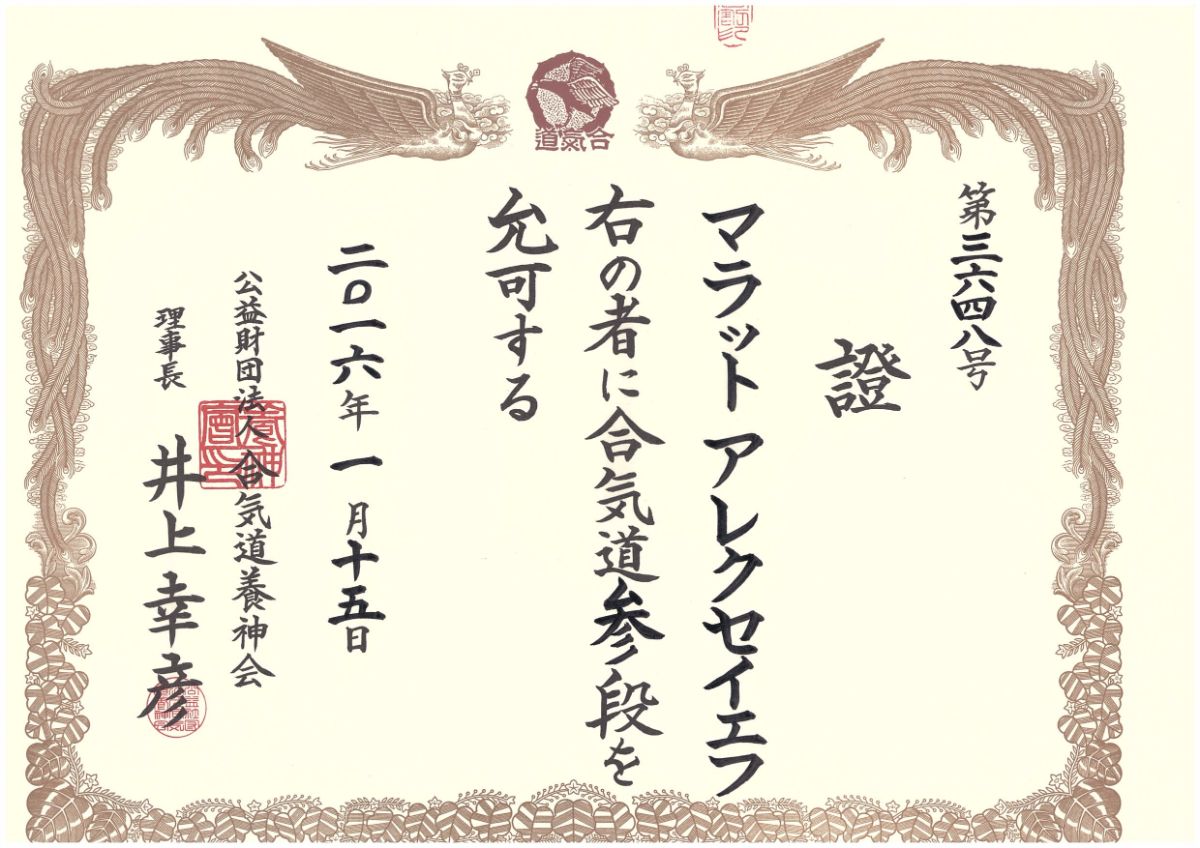 合氣道
第三六四八号
證
マラット アレクセイエフ
右の者に合気道参段を
允可する
二〇一六年一月十五日
公益財団法人合気道養神会
理事長 井上幸彦